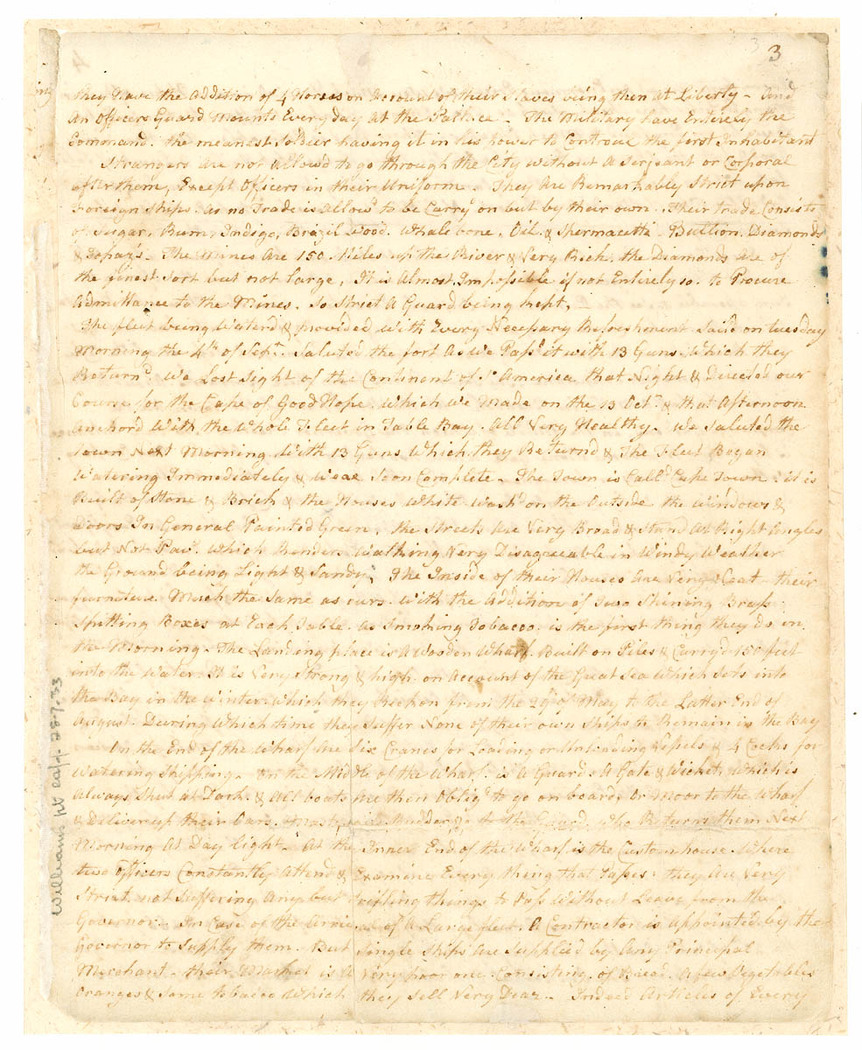 3
they Have the Addition of 4 Horses on Account of their Slaves being then at Liberty - And
an Officers Guard Mounts Every day at the Pallace - The Military have Entirely the
Command. the meanest Soldier having it in his power to Controul the first Inhabitant
Strangers are not allowd to go through the City without a Serjeant or Corporal
after them, Except Officers in their Uniform. They Are Remarkably Strict upon
Foreign Ships. as no Trade is allowd to be Carry on but by their own. Their trade Consists
of Sugar, Rum, Indigo, Brazil Wood. Whale bone, Oil & Spermacetti. Bullion. Diamonds
& Topaz's. The Mines Are 150 Miles up the River & Very Rich. the Diamonds are of
the finest Sort but not large, It is Almost Impossible if not Entirely so. to Procure
Admittance to the Mines. So Strict A Guard being kept. -
The fleet being Waterd & provided With Every Necessary Refreshment Saild on tuesday
Morning the 4th of Sept. Saluted the fort As We Pass'd it with 13 Guns. Which they
Returnd. We Lost Sight of the Continent of So America that Night & Directed our
Course for the Cape of Good Hope. Which We Made on the 13 Oct. & that Afternoon
Anchord With the Whole Fleet in Table Bay. All Very Healthy. We Saluted the
Town Next Morning With 13 Guns Which they Returnd & The Fleet Began
Watering Immediately & Wear Soon Complete - The Town is Calld Cape Town it is
Built of Stone & Brick & the Houses White Wash'd on the Outside the Windows &
Doors In General Painted Green, the Streets Are Very Broad & Stand At Right Angles
but Not Pav'd. Which Renders Walking Very Disagreeable in Windy Weather
the Ground being Light & Sandy, The Inside of their Houses Are Very Neat their
furniture Much the Same as ours. With the Addition of Two Shining Brass
Spitting Boxes at Each Table. as Smoking Tobacco. is the first thing they do in
the Morning - The Landing place is A Wooden Wharf. Built on Piles & Carryd 150 feet
into the Water. It is Very Strong & high. on Account of the Great Sea Which Sets into
the Bay in the Winter. Which they Reckon from the 29th of May to the Latter End of
August. During Which time they Suffer None of their own Ships to Remain in the Bay
On the End of the Wharf Are Six Cranes for Loading or Unloading Vessels & 4 Cocks for
Watering Shipping. On the Middle of the Wharf. is A Guard A Gate & Wicket, Which is
Always Shut at Dark. & All boats are then Oblig'd to go on board, Or Moor to the Wharf
& Deliver up their Oars. Masts, and Rudder, to the Guard. Who Returns them Next
Morning At Day light - At the Inner End of the Wharf is the Custom house. Where
two Officers Constantly Attend & Examine Every thing that Passes. they Are Very
Strict, not Suffering Any but trifling things to Pass Without Leave from the
Governor - In Case of the Arrival of A Large fleet. A Contractor is Appointed by the
Governor to Supply them. But Single Ships Are Supplied by Any Principal
Merchant - their Market is A Very poor one. Consisting. of Bread. A few Vegetables
Oranges & Some tobacco Which they Sell Very Dear - Indeed Articles of Every
Williams pt